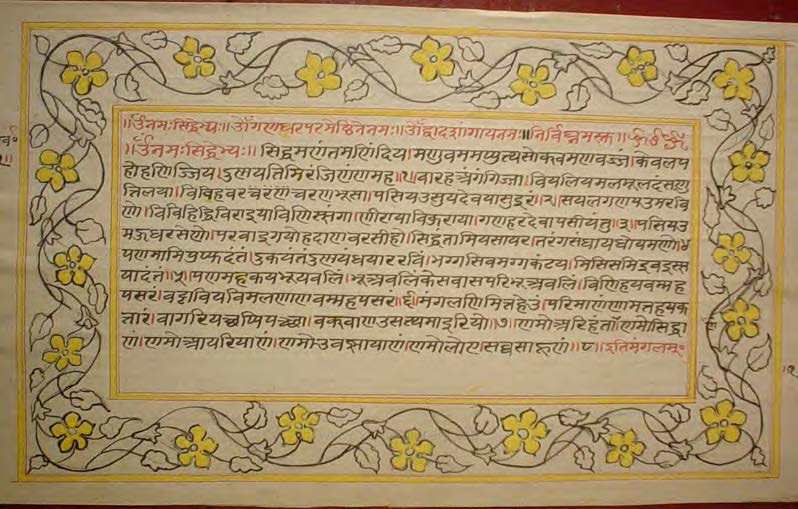 ॥र्उंनमःसिद्धेभ्यः॥ओँगणधरपरमेष्ठिनेनमः॥ओँद्वादशांगायनमः॥निर्विघ्नमस्तु॥
।र्उंनमःसिद्धेभ्यः॥सिद्धमणंतमणिंदिय।मणुवममप्पुत्थसोक्खमणवज्जं।केवलप
होहणिज्जिय।दुण्णयतिमिरंजिणंणमह।१।वारहअंगंगिज्झा।वियलियमलमूलदंसणु
त्तिलया।विविहवरचरणचरणभूसा।पसियउसुयदेवयासुइरं।२।सयलगणपउमरवि
णो।विविहिद्धिविराइयाविणिस्संगा।णीरायाविकुराया।गणहरदेवापसीयंतु।३।पसियउ
महुधरसेणो।परवाइगयोहदाणवरसीहो।सिद्धंतामियसायर।तरंगसंघायधोयमणो।४
पणमामिपुप्फदंतं।दुकयंतंदुण्णयंधयाररविं।भग्गसिवमग्गकंटय।मिसिसमिइवइंस्स
यादंतं।५।पणमहकयभूयबलिं।भूअबलिंकेसवासपरिभूअबलिं।विणिहयवम्मह
पसरं।वड्ढावियविमलणाणवम्महपसरं।६।मंगलणिमित्तहेउं।परिमाणंणामतहयक
त्तारं।वागरियछप्पियपच्छा।वक्खाणउसत्थमाइरियो।७।णमोअरिहंताणंणमोसिद्धा
णं।णमोआयरियाणं।णमोउवज्झायाणं।णमोलोएसव्वसाहूणं॥८।इतिमंगलम्॰